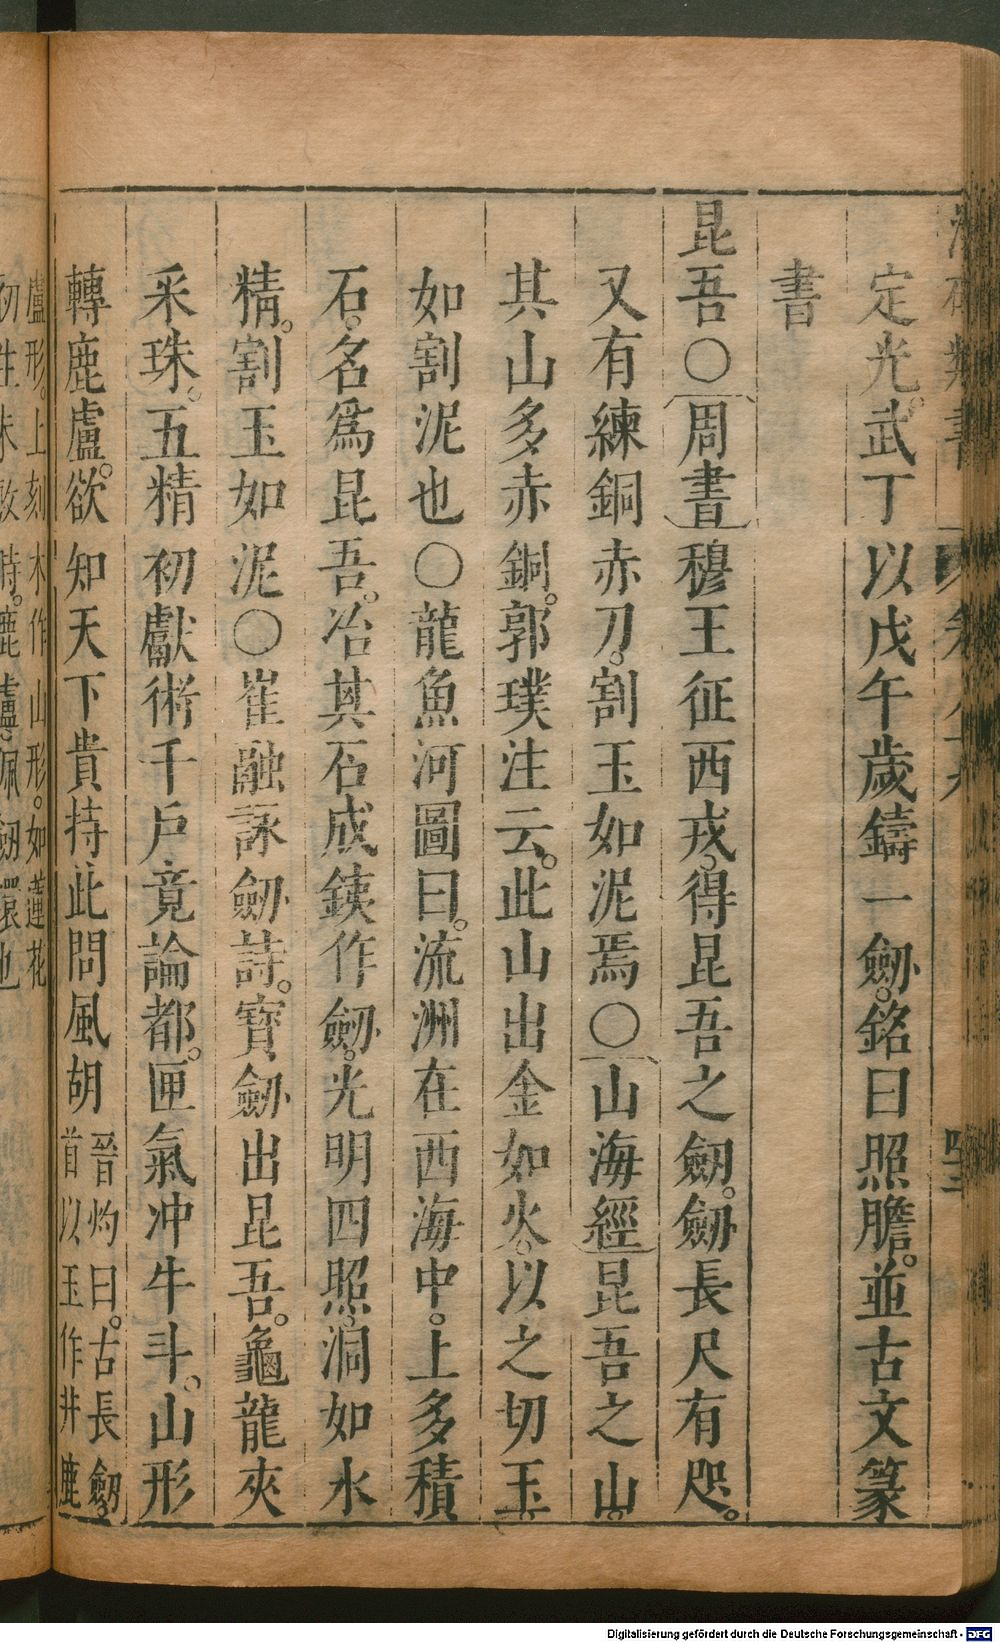 定光。武丁以戊午歲鑄一劒。銘曰照膽。並古文篆
書
昆吾○周書穆王征西戎。得昆吾之劒。劒長尺有咫。
又有練銅赤刀。割玉如泥焉○山海經昆吾之山。
其山多赤銅。郭璞注云。此山出金如火。以之切玉。
如割泥也○龍魚河圖曰。流洲在西海中。上多積
石。名爲昆吾。冶其石成銕作劒。光明四照。洞如水
精。割玉如泥○崔融詠劒詩。寳劒出昆吾。龜龍夾
采珠。五精初獻術千戶竟論都。匣氣冲牛斗。山形
轉鹿盧。欲知天下貴持此問風胡
晉灼曰。古長劒。
首以玉作井鹿
盧形。上刻木作山形。如蓮花
初生未敷時。鹿盧佩劒環也
Digitalisierung gefördert durch die Deutsche Forschungsgemeinschaft - DFG